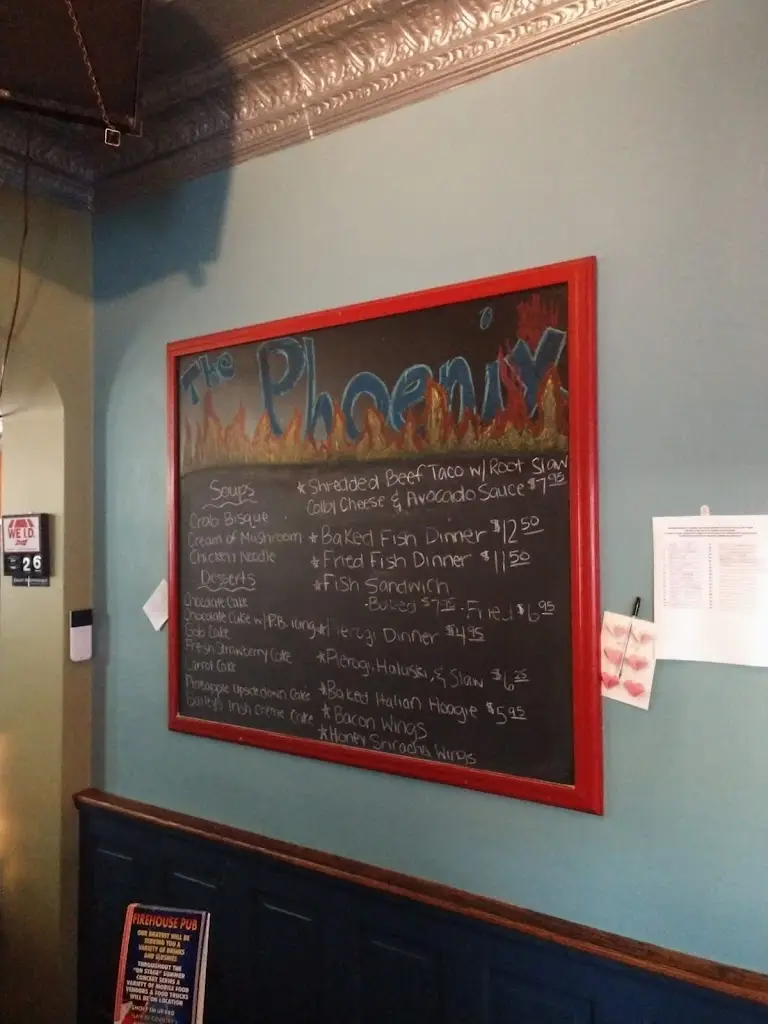 The Phoenix
Soups
Crab Bisque
Cream of Mushroom
Chicken Noodle
Desserts
Chocolate Cake
Chocolate Cake w/ P.B. Icing
Gob Cake
Fresh Strawberry Cake
Carrot Cake
Pineapple Upsidedown Cake
Bailey's Irish Creme Cake
* Shredded Beef Taco w/ Root Slaw
Colby Cheese & Avocado Sauce $7.95
* Baked Fish Dinner $12.50
* Fried Fish Dinner $11.50
* Fish Sandwich
- Baked - Fried $6.95
* Pierogi Dinner $4.95
* Pierogi, Haluski, & Slaw
* Baked Italian Hoagie $5.95
* Bacon Wings
* Honey Sriracha Wings
WE I.D.
26
FIREHOUSE PUB
OUR BRAVEST WILL BE
SERVING YOU A
VARIETY OF DRINKS
AND SLUSHIES
THROUGHOUT THE
"ON STAGE" SUMMER
CONCERT SERIES A
VARIETY OF MOBILE FOOD
VENDORS & FOOD TRUCKS
WILL BE ON LOCATION